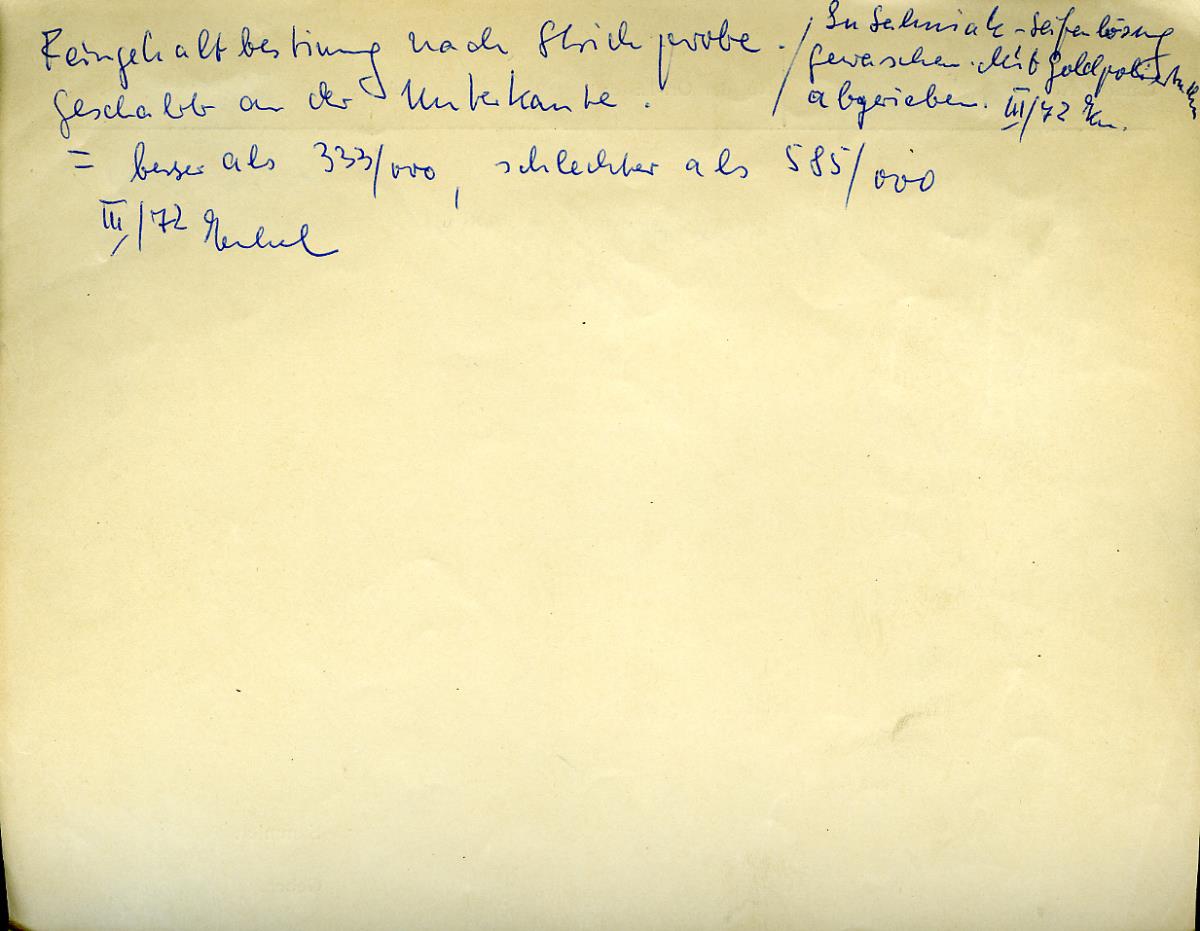 Feingehaltbestimmg nach Strichprobe.
geschabt an der Unterkante.
= besser als 333/000, schlechter als 585/000
III/72
/ In Salmiak-Seifenlösung
gewaschen. Mit Goldpoliertuch
abgerieben. III/72